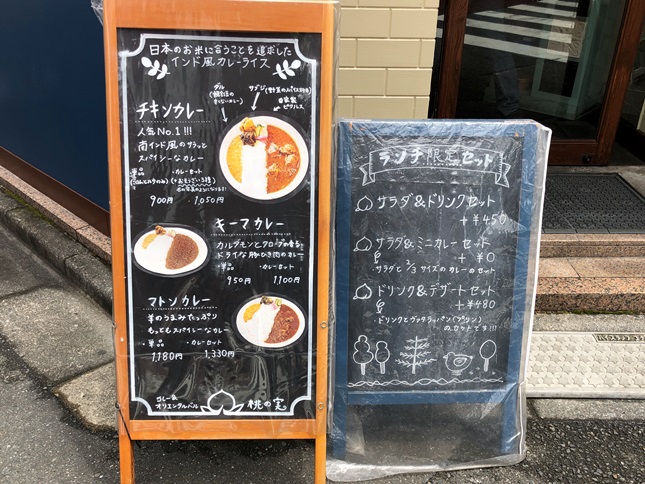 日本のお米に合うことを追求した
インド風カレーライス
ダル
サブジ
自家製
ピクルス
チキンカレー
人気No.1!!!
南インド風のサラッと
スパイシーなカレー
単品
・カレーセット
900円 1,050円
キーマカレー
カルダモンとクローブの香る
ドライな豚ひき肉のカレー
・単品 ・カレーセット
950円 1,100円
マトンカレー
羊のうまみたっぷり
もっともスパイシーなカレー
・単品 ・カレーセット
1,180円 1,330円
カレー&
オリエンタルバル
桃の実
ランチ限定セット
サラダ&ドリンクセット
+¥450
サラダ&ミニカレーセット
+¥0
サラダと2/3サイズのカレーのセット
ドリンク&デザートセット
+¥480
・ドリンクとヴァタラッパン(プリン)
のセットです!!!